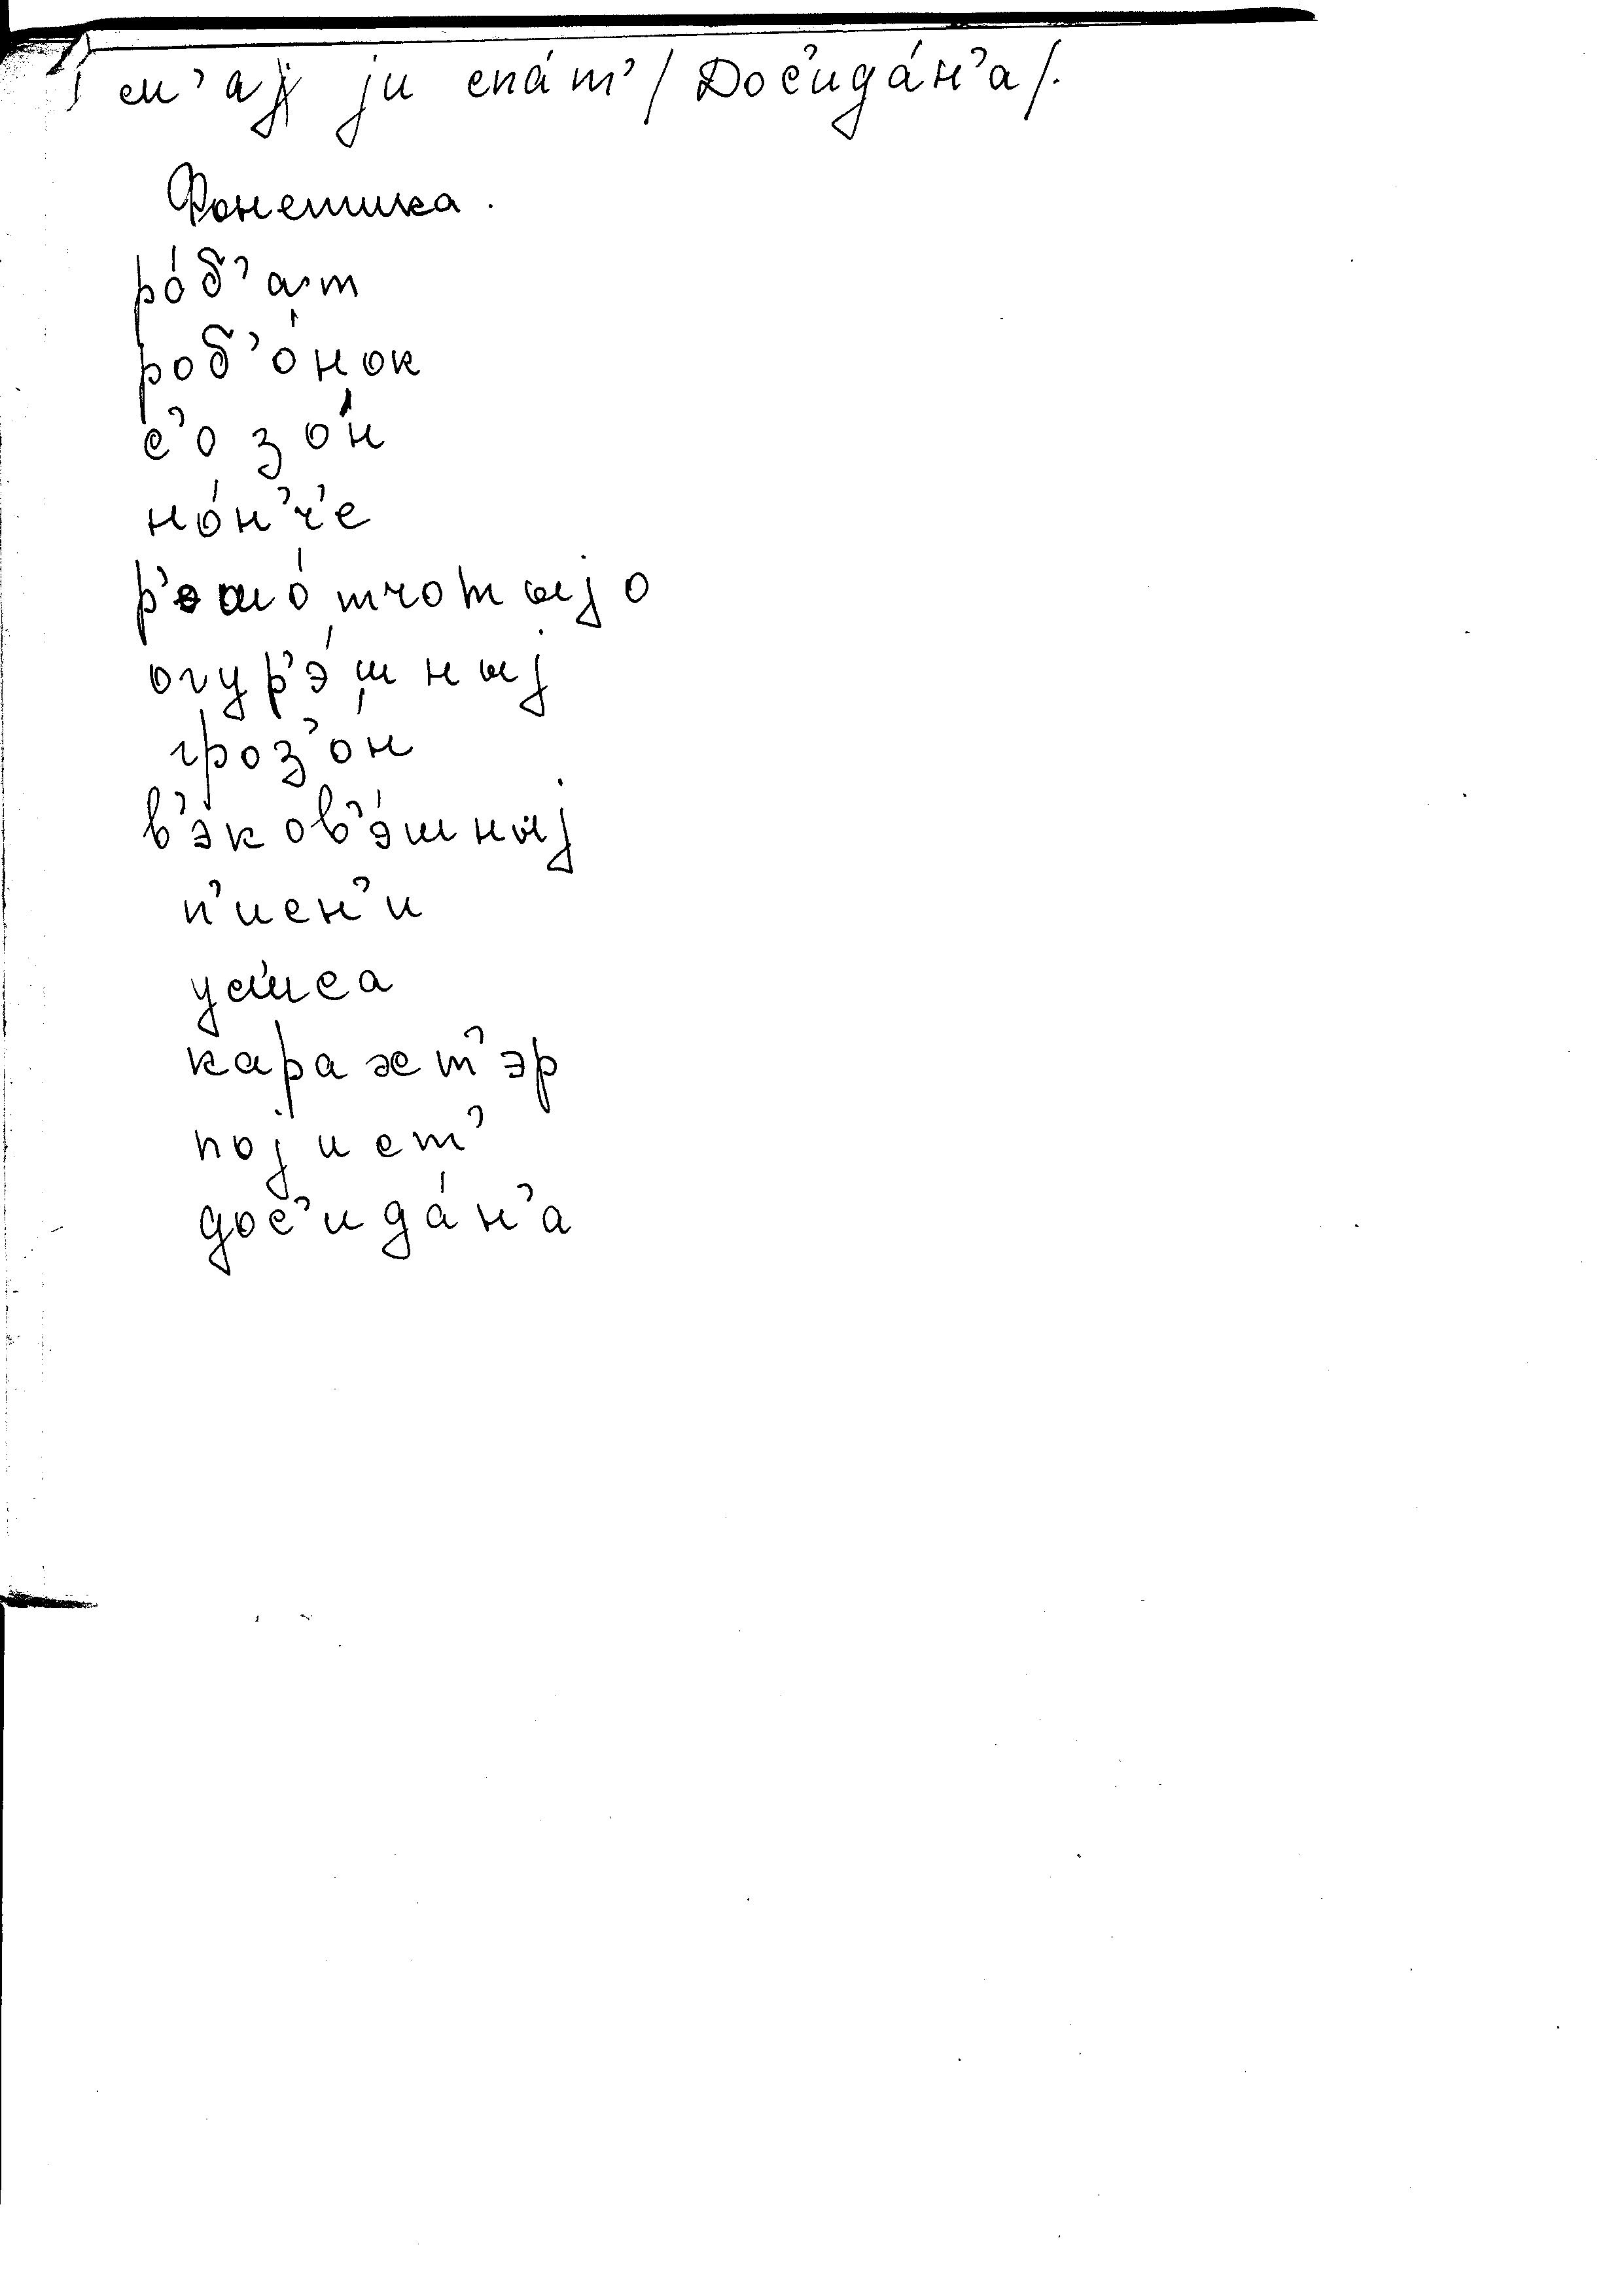 см'ај ји спа́т' / Дос'ида́н'а /.
Фонетика.
ро́б'ат
роб'о́нок
с'озо́н
но́н'ч'е
р'эшо́тчотыјо
огур'э́шныј
гроз'о́н
в'эков'э́шныј
п'исн'и
уса́
карахт'эр
појист'
дос'ида́н'а